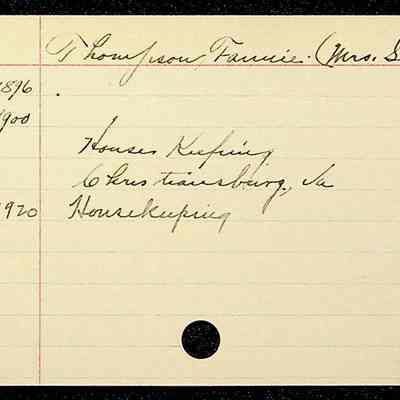 Thompson, Fannie. (Mrs. S
1896
1900
House Keeping
Christiansburg, Va
1920 Housekeeping